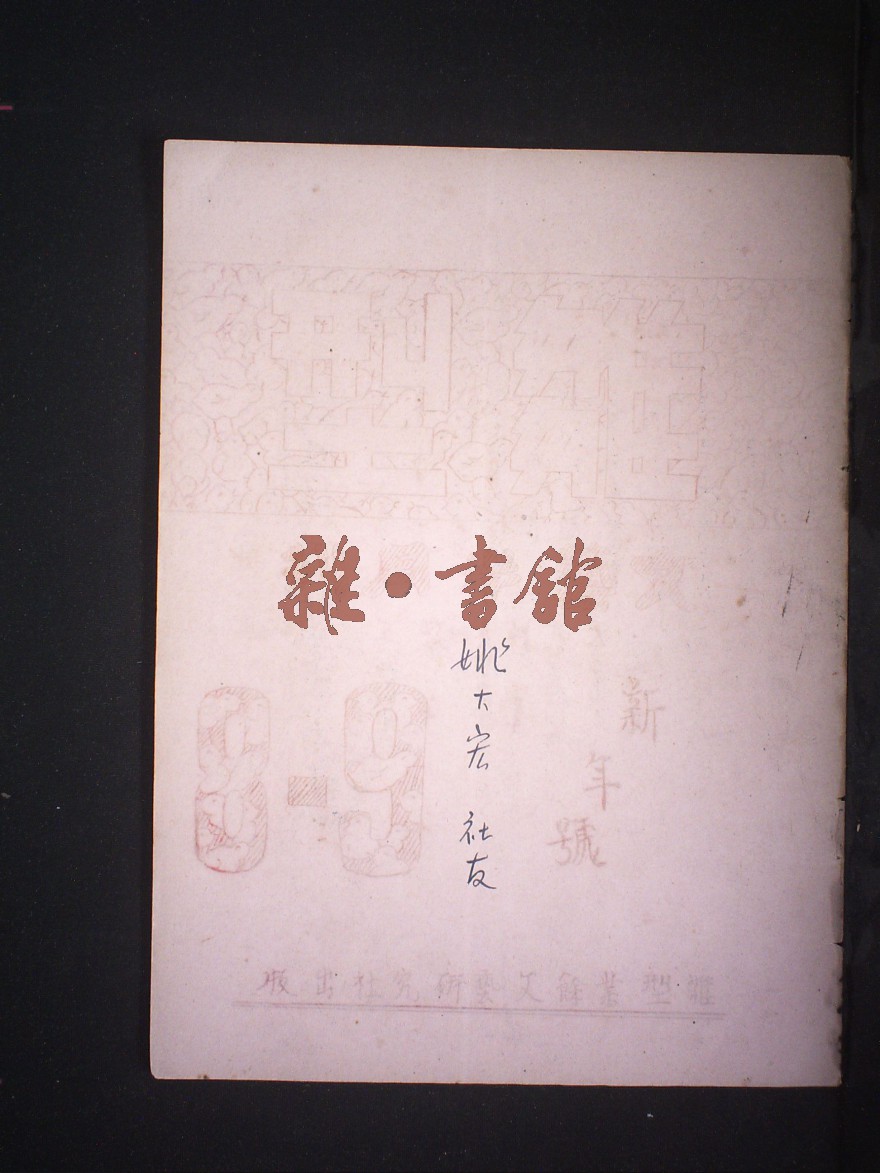 雛型
雜•書館
新年號
姚大宏 社友
8-9
雛型業餘文藝研究社出版